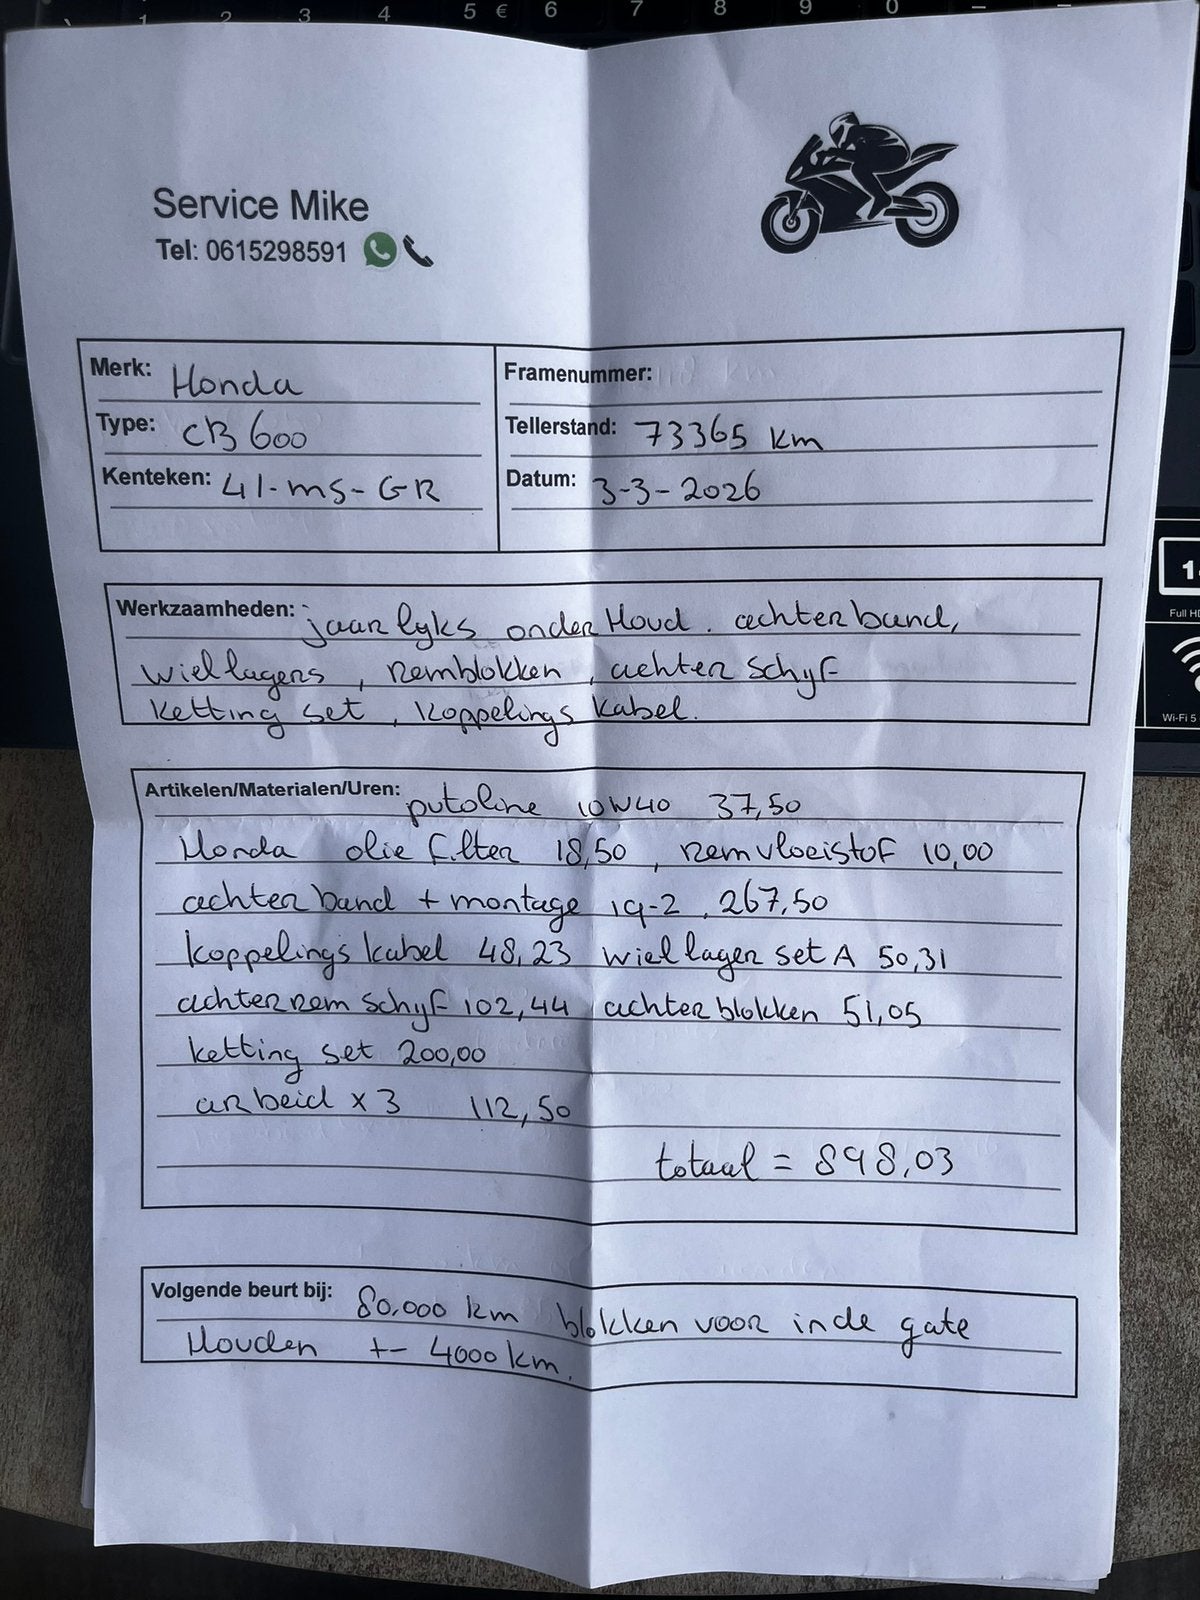 1 2 3 4 5 € 6 7 8 9 0
Service Mike
Tel: 0615298591
Merk: Honda
Type: CB 600
Kenteken: 41-ms-GR
Framenummer:
Tellerstand: 73365 km
Datum: 3-3-2026
Werkzaamheden: jaarlyks onderHoud. achterband,
wiellagers, Remblokken, achter schyf
ketting set, koppelings kabel.
Artikelen/Materialen/Uren: putoline 10W40 37,50
Honda olie filter 18,50, Remvloeistof 10,00
achterband + montage 19-2, 267,50
koppelings kabel 48,23 wiellager set A 50,31
achterrem schyf 102,44, achterblokken 51,05
ketting set 200,00
arbeid x 3 112,50
totaal = 898,03
Volgende beurt bij: 80.000 km blokken voor in de gate
Houden +- 4000 km.
Full HD
Wi-Fi 5